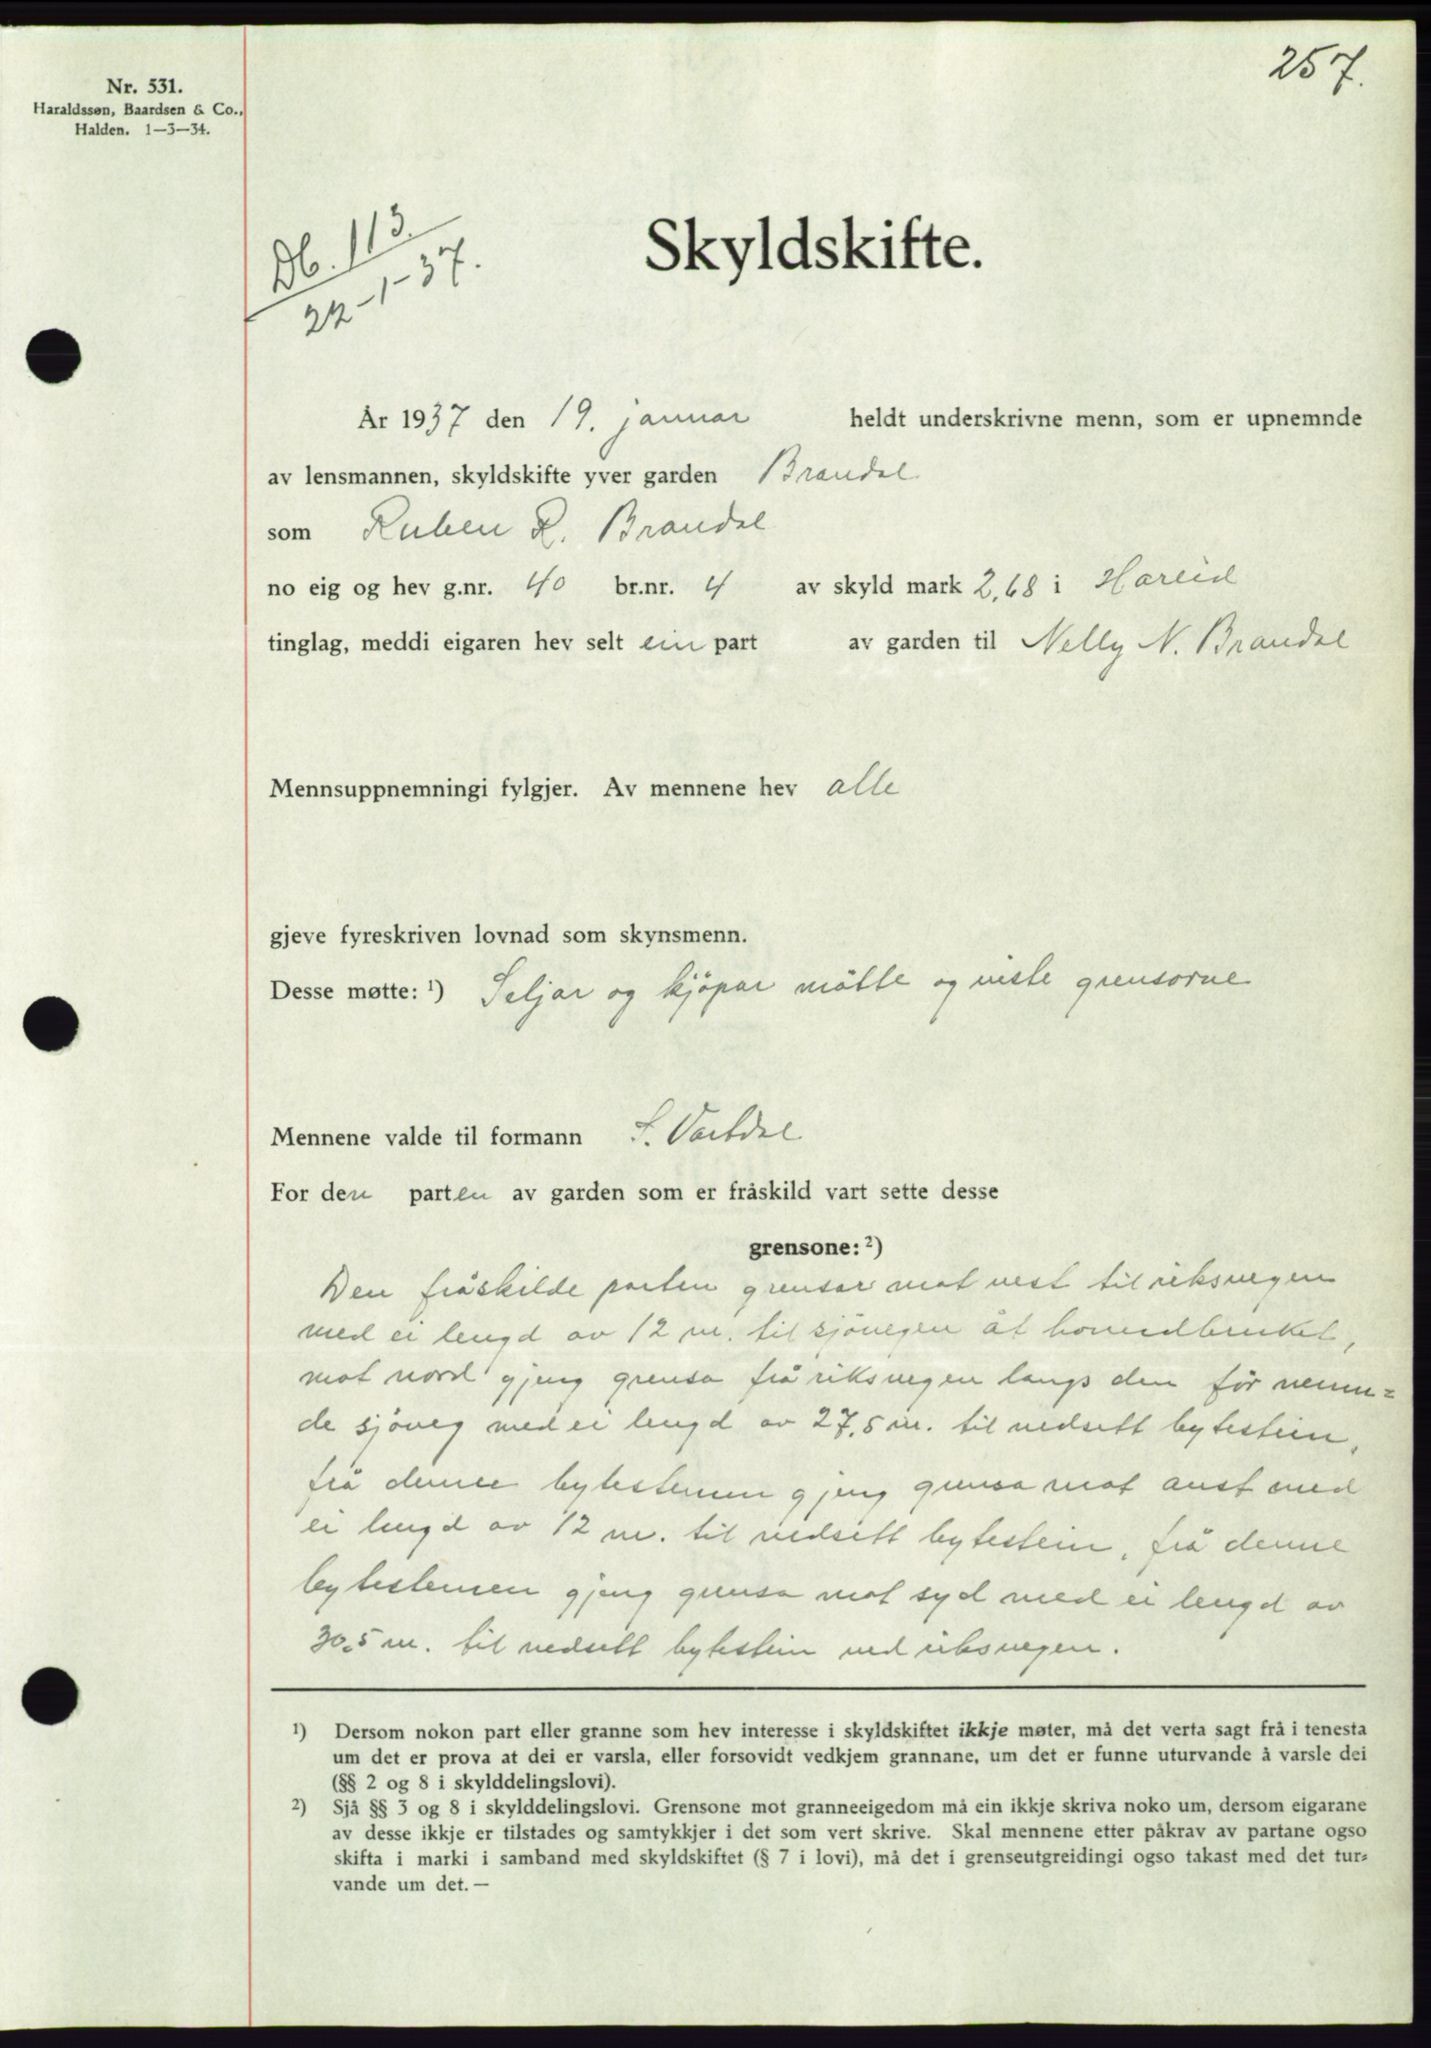 257.
Nr. 531.
Haraldssøn, Baardsen & Co.,
Halden. 1—3—34.
Db. 113.
22-1-37.
Skyldskifte.
År 1937 den 19. januar heldt underskrivne menn, som er upnemnde
av lensmannen, skyldskifte yver garden Brandal
som Ruben R. Brandal
no eig og hev g.nr. 40 br.nr. 4 av skyld mark 2,68 i Hareid
tinglag, meddi eigaren hev selt ein part av garden til Nelly N. Brandal
Mennsuppnemningi fylgjer. Av mennene hev alle
gjeve fyreskriven lovnad som skynsmenn.
Desse møtte: ¹) Seljar og kjöpar mötte og viste grensorne
Mennene valde til formann S. Vartdal
For den parten av garden som er fråskild vart sette desse
grensone: ²)
Den fråskilde parten grensar mot vest til riksvegen
med ei lengd av 12 m. til sjövegen åt hovudbruket,
mot nord gjeng grensa frå riksvegen langs den för nemn=
de sjöveg med ei lengd av 27,5 m. til nedsett bytestein,
frå denne bytesteinen gjeng grensa mot aust med
ei lengd av 12 m. til nedsett bytestein, frå denne
bytesteinen gjeng grensa mot syd med ei lengd av
30,5 m. til nedsett bytestein ved riksvegen.
¹) Dersom nokon part eller granne som hev interesse i skyldskiftet ikkje møter, må det verta sagt frå i tenesta
um det er prova at dei er varsla, eller forsovidt vedkjem grannane, um det er funne uturvande å varsle dei
(§§ 2 og 8 i skylddelingslovi).
²) Sjå §§ 3 og 8 i skylddelingslovi. Grensone mot granneeigedom må ein ikkje skriva noko um, dersom eigarane
av desse ikkje er tilstades og samtykkjer i det som vert skrive. Skal mennene etter påkrav av partane ogso
skifta i marki i samband med skyldskiftet (§ 7 i lovi), må det i grenseutgreidingi ogso takast med det tur-
vande um det. —